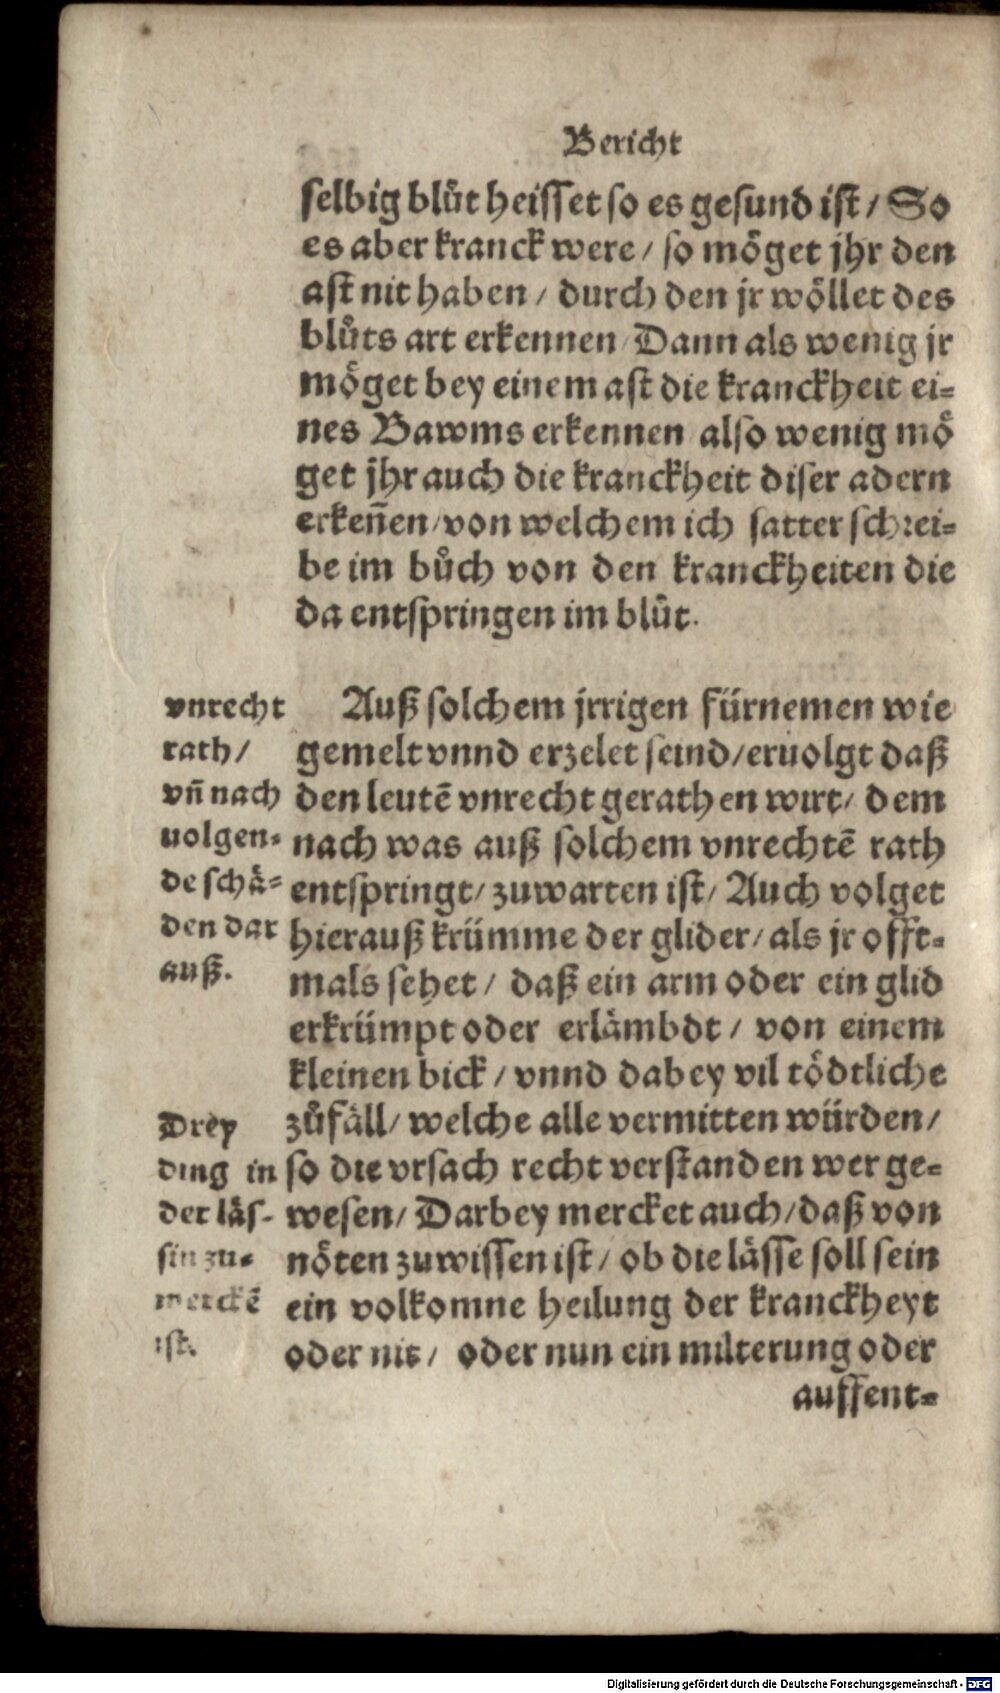 Bericht
selbig blůt heisset so es gesund ist / So
es aber kranck were / so möget jhr den
ast nit haben / durch den jr wöllet des
blůts art erkennen Dann als wenig jr
möget bey einem ast die kranckheit ei=
nes Bawms erkennen also wenig mö
get jhr auch die kranckheit diser adern
erkeñen / von welchem ich satter schrei=
be im bůch von den kranckheiten die
da entspringen im blůt.
vnrecht
rath /
vñ nach
uolgen=
de schä=
den dar
auß.
Auß solchem jrrigen fürnemen wie
gemelt vnnd erzelet seind / eruolgt daß
den leutē vnrecht gerathen wirt / dem
nach was auß solchem vnrechtē rath
entspringt / zuwarten ist / Auch volget
hierauß krümme der glider / als jr offt=
mals sehet / daß ein arm oder ein glid
erkrümpt oder erlämbdt / von einem
kleinen bick / vnnd dabey vil tödtliche
zůfäll / welche alle vermitten würden /
so die vrsach recht verstanden wer ge=
wesen / Darbey mercket auch / daß von
nöten zuwissen ist / ob die lässe soll sein
ein volkomne heilung der kranckheyt
oder nit / oder nun ein milterung oder
Drey
ding in
der läs=
sin zu=
merckē
ist.
auffent=
Digitalisierung gefördert durch die Deutsche Forschungsgemeinschaft - DFG